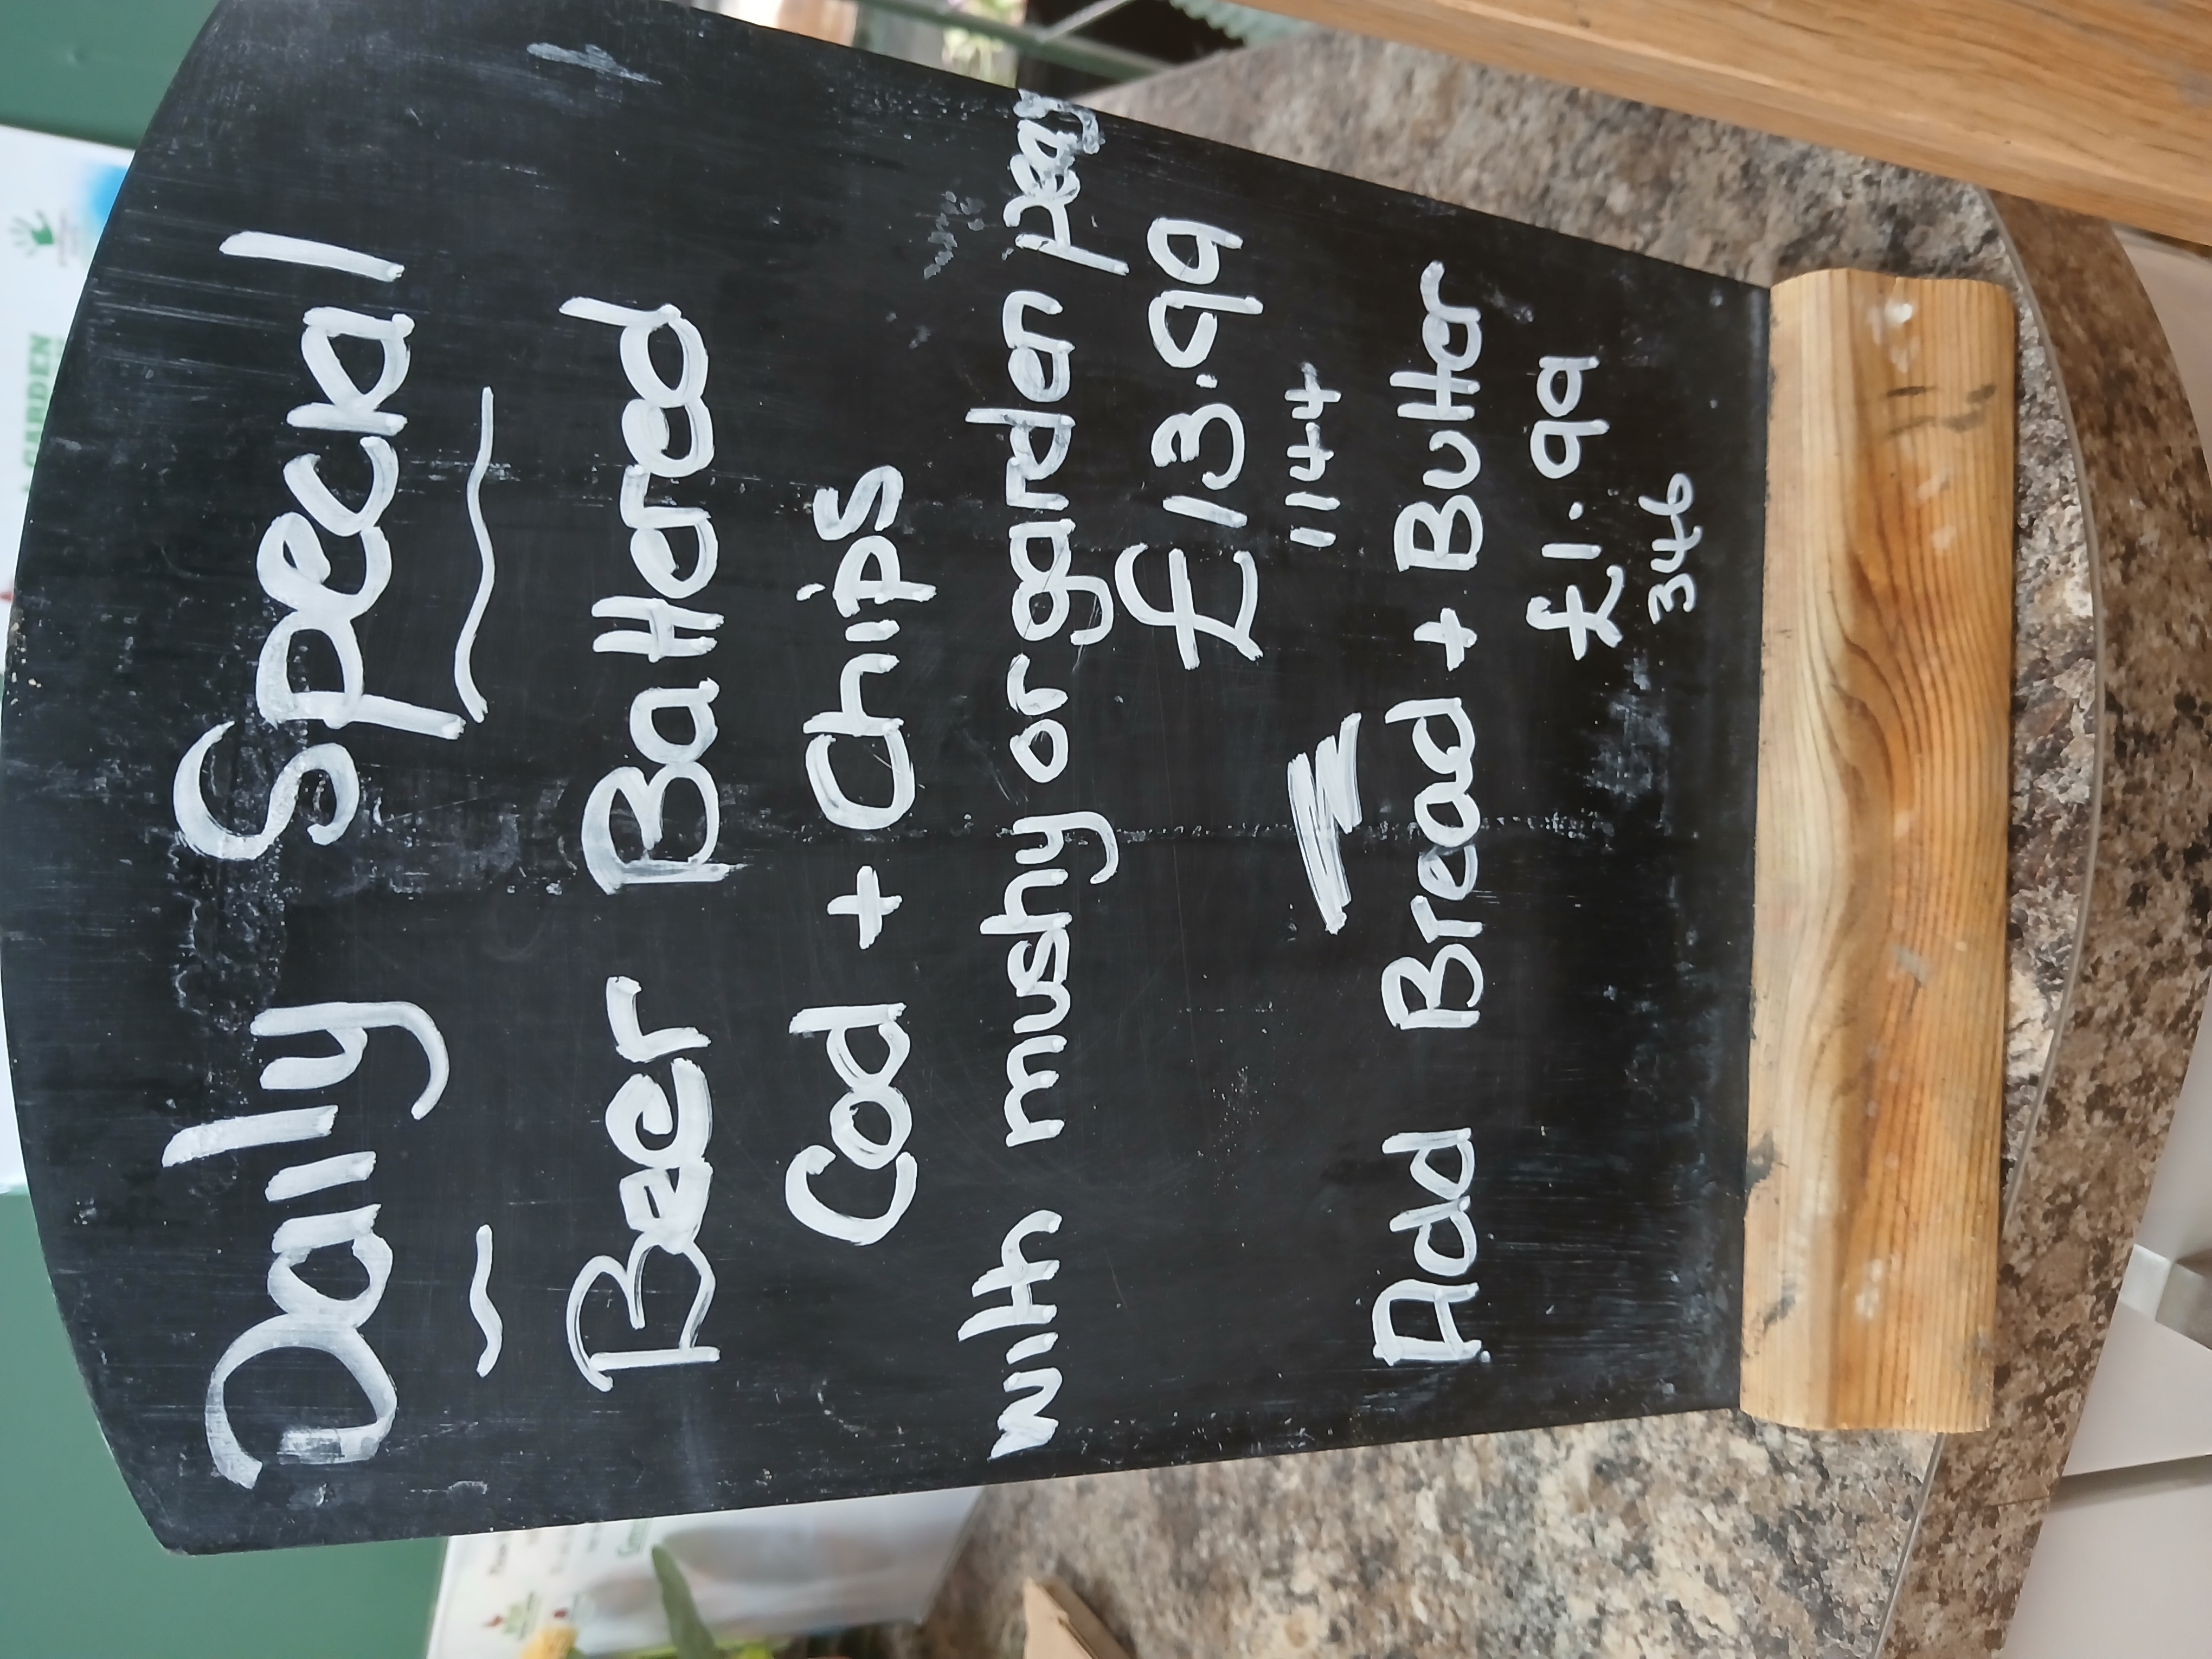 Daily Special
Beer Battered
Cod + Chips
with mushy or garden peas
£13.99
1144
Add Bread + Butter
£1.99
346
GARDEN